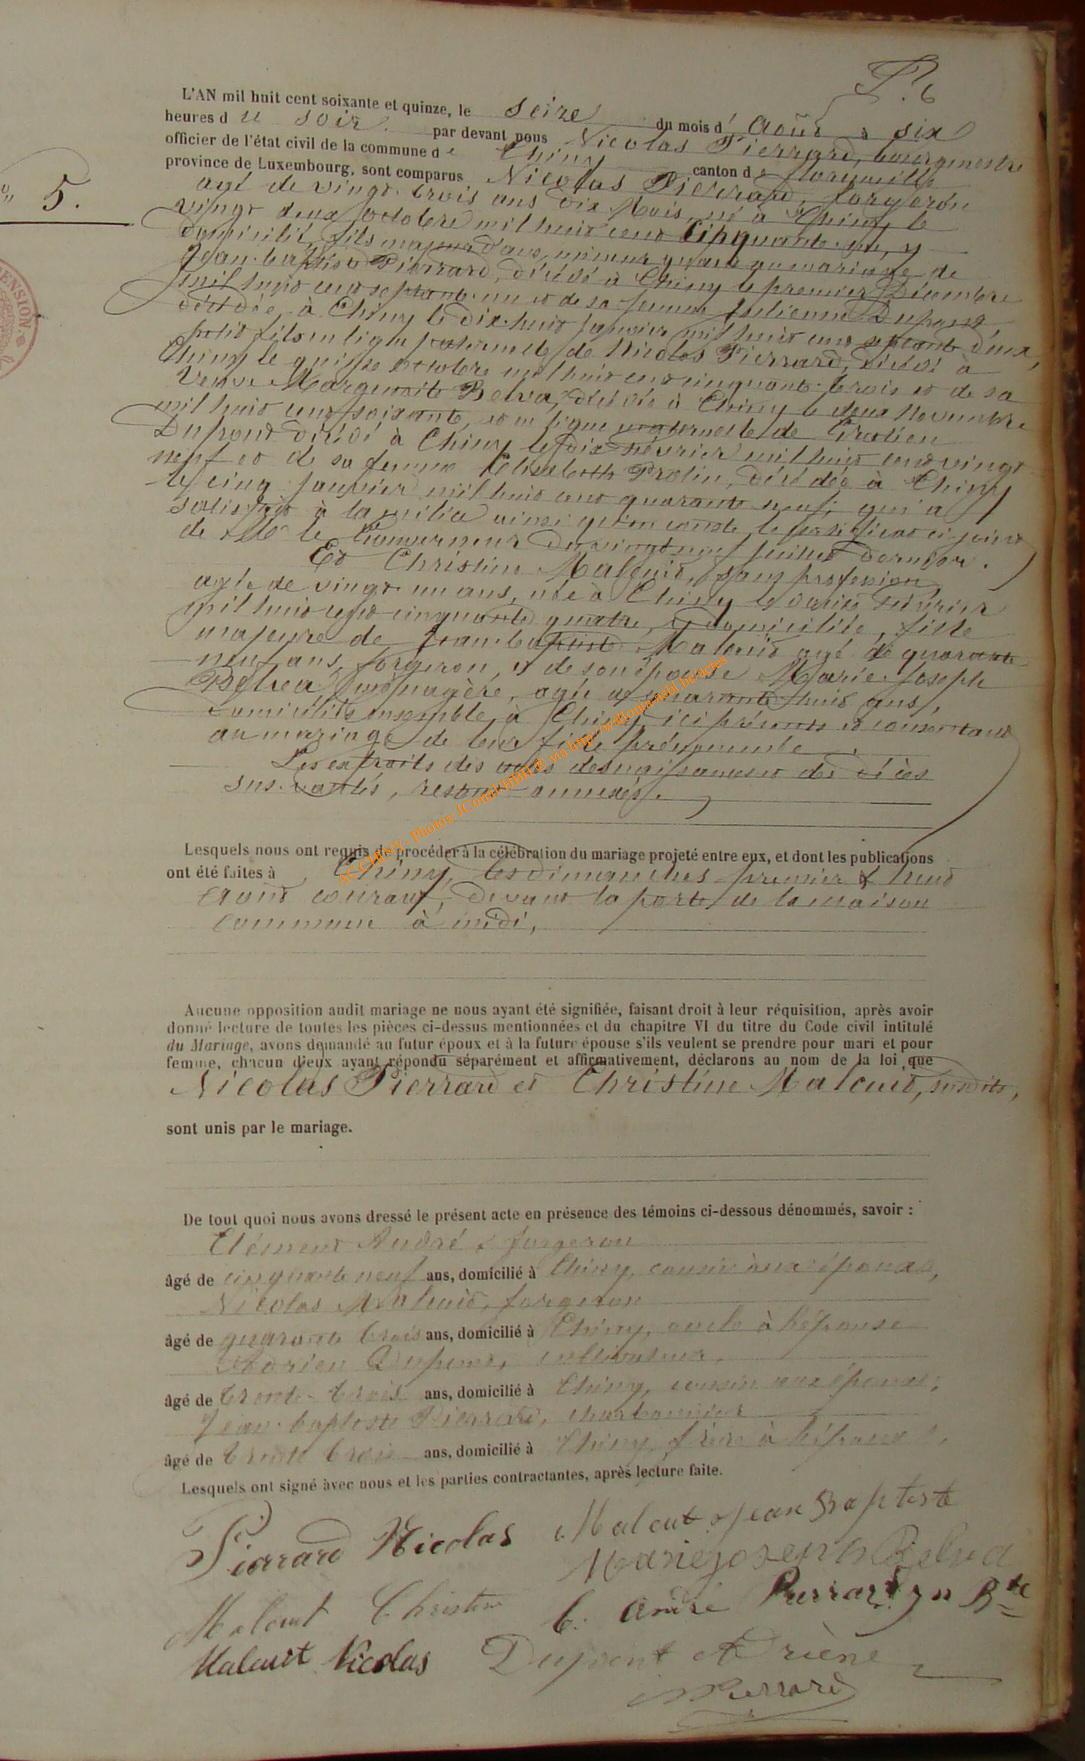 P. 6
N° 5.
L'AN mil huit cent soixante et quinze, le seize du mois d' août à six
heures du soir par devant nous Nicolas Pierrard, bourgmestre
officier de l'état civil de la commune de Chiny canton de Florenville
province de Luxembourg, sont comparus Nicolas Pierrard, forgeron
agé de vingt-trois ans dix mois, né à Chiny, le
vingt deux octobre mil huit cent cinquante-un, y
domicilié, fils majeur d'ans, mineur quant au mariage de
Jean-baptiste Pierrard, décédé à Chiny le premier Décembre
mil huit cent septante-un et de sa femme Julienne Dupont,
décédée, à Chiny le dix-huit janvier mil huit cent septante deux,
petit fils en ligne paternelle de Nicolas Pierrard, décédé à
Chiny le quinze octobre mil huit cent cinquante-trois et de sa
veuve Marguerite Belva, décédée à Chiny le deux Novembre
mil huit cent soixante, et en ligne maternelle de
Dupont décédé à Chiny le dix février mil huit cent vingt
neuf et de sa femme Elisabeth Prolin, décédée à Chiny
le cinq janvier mil huit cent quarante neuf, qui a
satisfait à la milice ainsi qu'en conste le certificat ci-joint
de Mr le Gouverneur du vingt neuf juillet dernier.
Et Christine Malcuit, sans profession
agée de vingt un ans, née à Chiny le février
mil huit cent cinquante quatre, y domiciliée, fille
majeure de Jean-baptiste Malcuit agé de quarante
neuf ans, forgeron, et de son épouse Marie-Joseph
Belva, ménagère, agée de quarante huit ans,
domiciliés ensemble, à Chiny, ici présents et consentant
au mariage de leur fille prénommée.
Les extraits des actes de naissances et des décès
sus-vantés, restent annexés.
AC CHINY - Photos
Lesquels nous ont requis de procéder à la célébration du mariage projeté entre eux, et dont les publications
ont été faites à Chiny, les dimanches premier & huit
août courant, devant la porte de la maison
commune à midi,
Aucune opposition audit mariage ne nous ayant été signifiée, faisant droit à leur réquisition, après avoir
donné lecture de toutes les pièces ci-dessus mentionnées et du chapitre VI du titre du Code civil intitulé
du Mariage, avons demandé au futur époux et à la future épouse s'ils veulent se prendre pour mari et pour
femme, chacun d'eux ayant répondu séparément et affirmativement, déclarons au nom de la loi, que
Nicolas Pierrard et Christine Malcuit, susdits,
sont unis par le mariage.
De tout quoi nous avons dressé le présent acte en présence des témoins ci-dessous dénommés, savoir :
Clément André, forgeron
âgé de cinquante neuf ans, domicilié à Chiny, cousin aux épouse,
Nicolas Malcuit, forgeron
âgé de quarante trois ans, domicilié à Chiny, oncle à l'épouse
Adrien Dupont, cultivateur,
âgé de trente-trois ans, domicilié à Chiny, cousin aux époux,
Jean-baptiste Pierrard, charbonnier
âgé de trente trois ans, domicilié à Chiny, frère à l'époux.
Lesquels ont signé avec nous et les parties contractantes, après lecture faite.
Pierrard Nicolas Malcut Jean Baptiste
Marie joseph Belva
Malcuit Christine C. André Pierrard Jn Bte
Malcuit Nicolas Dupont Adriene
NPierrard